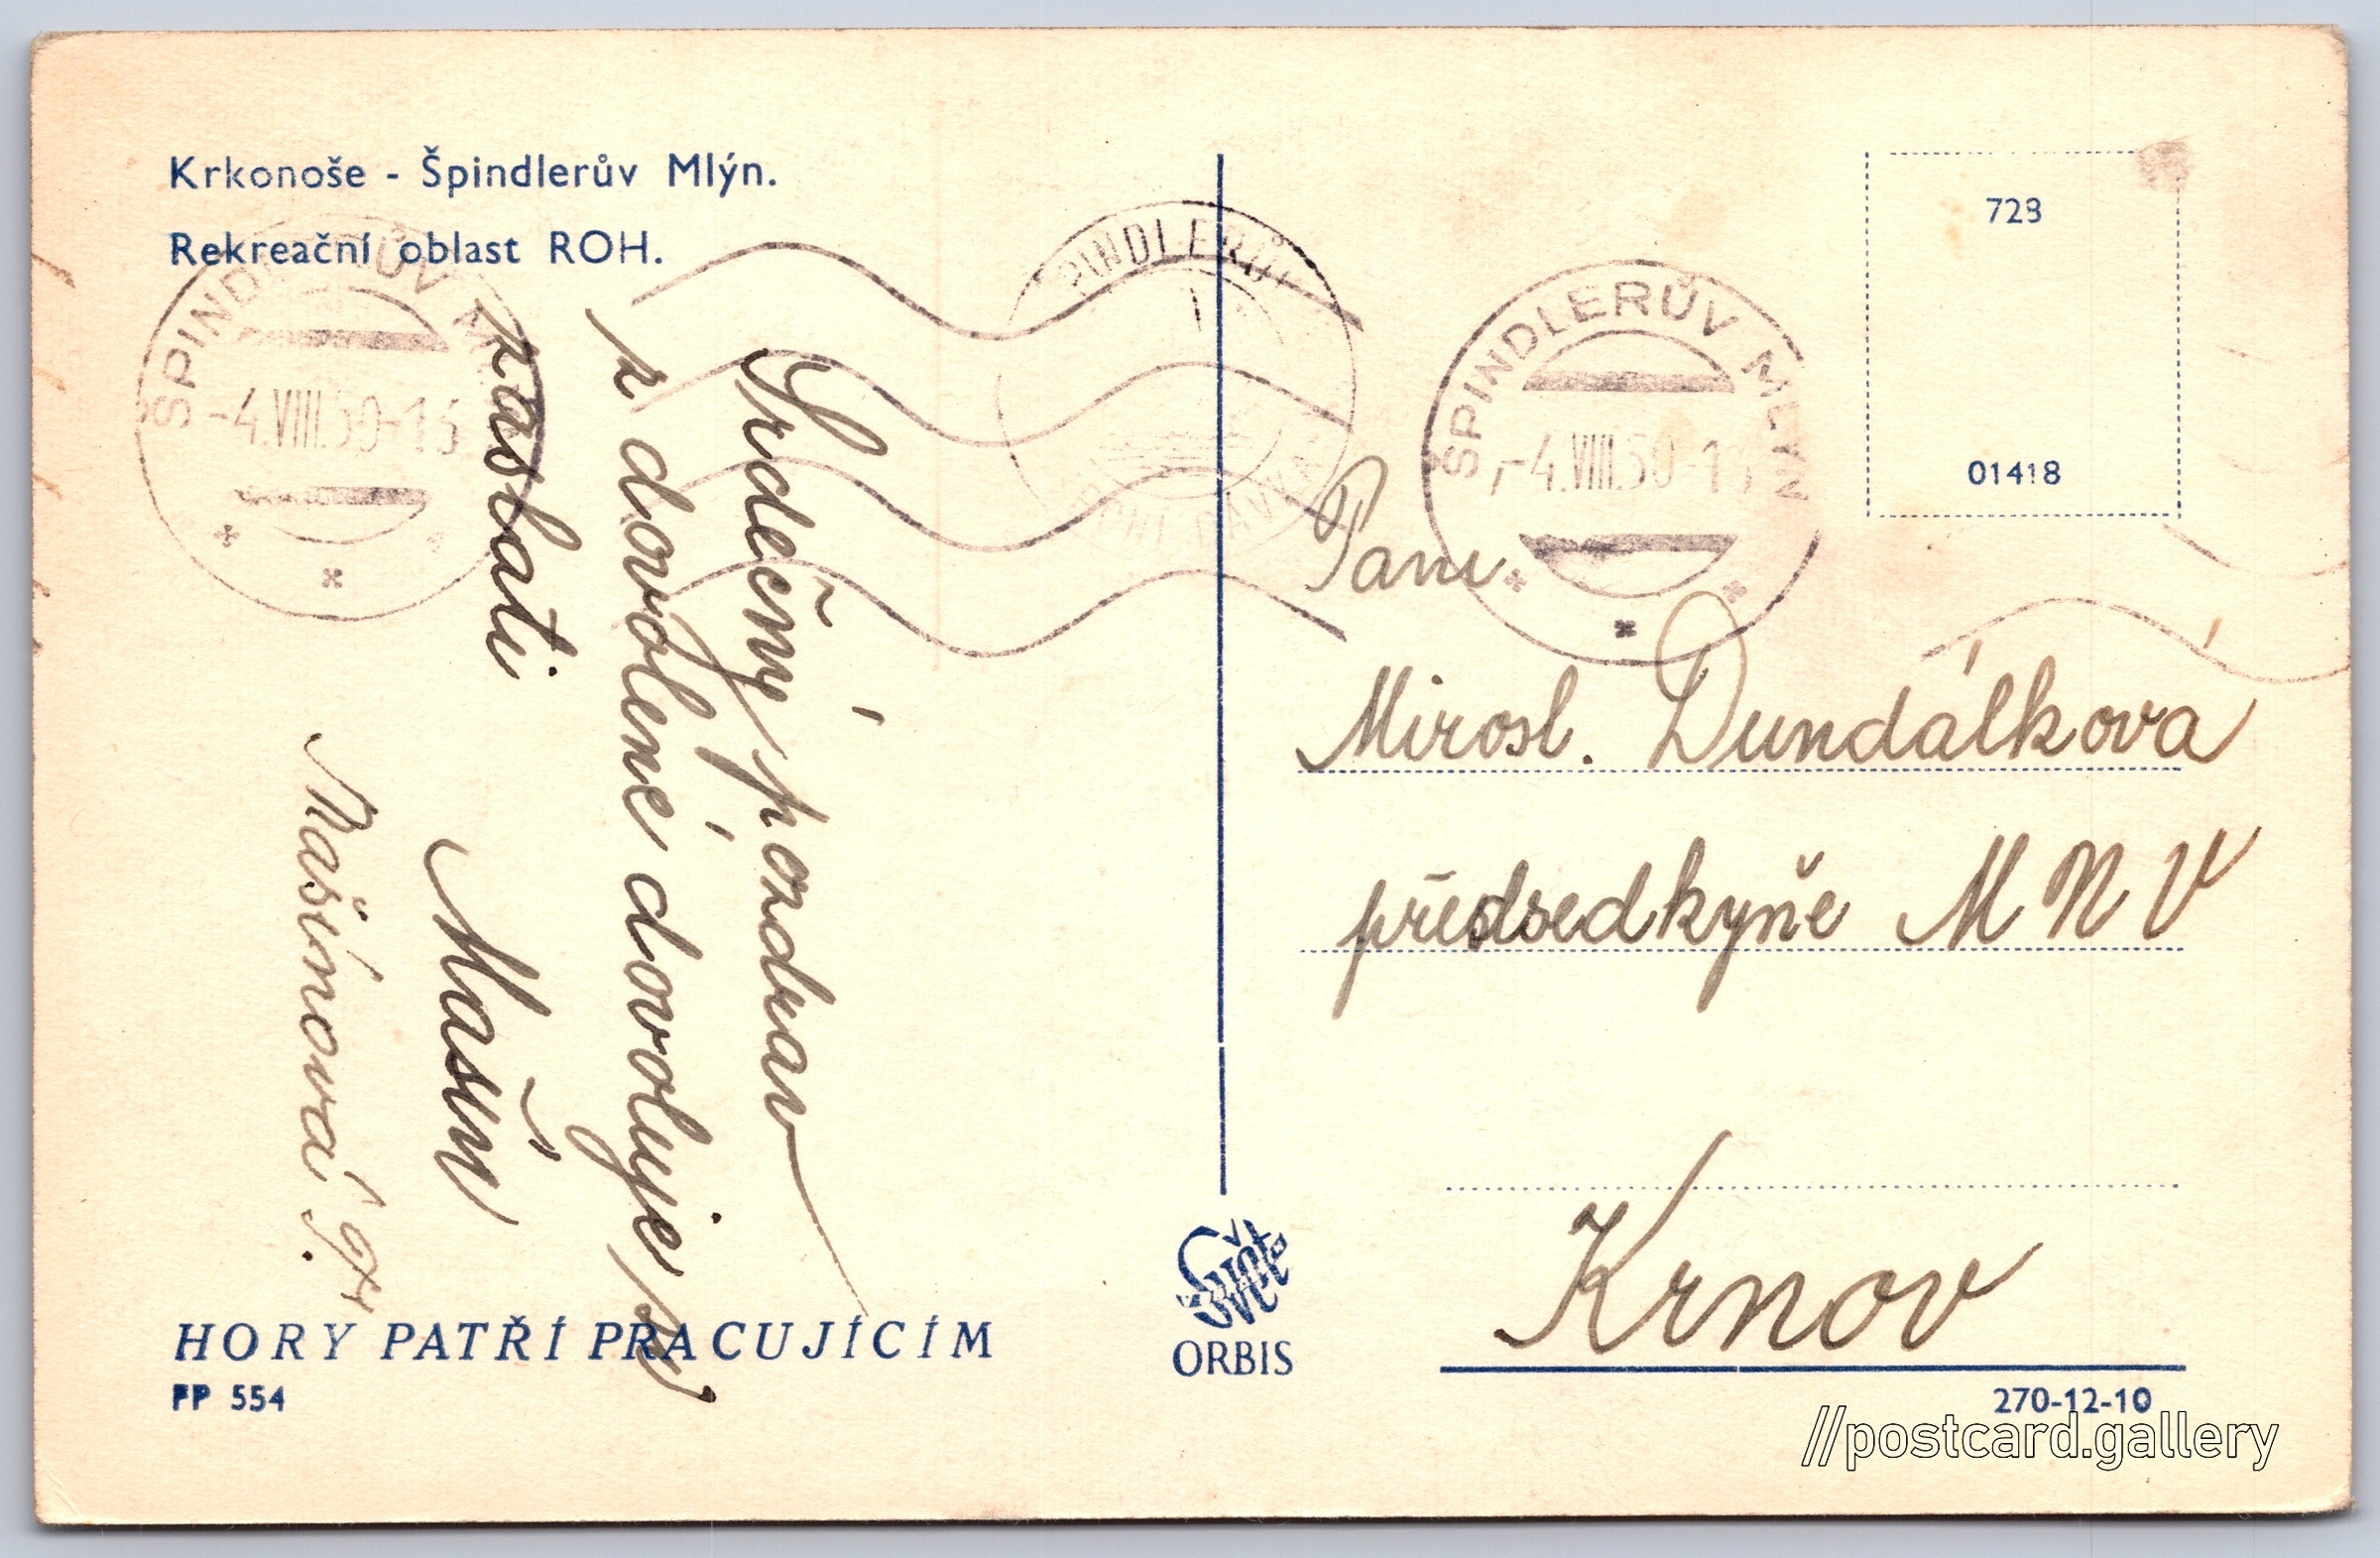 Krkonoše - Špindlerův Mlýn.
Rekreační oblast ROH.
ŠPINDLERŮV MLÝN
-4.VIII.50-13
Srdečný pozdrav
z dovolené dovoluje si
zaslati
Mašín
Mašínová
HORY PATŘÍ PRACUJÍCÍM
FP 554
PINDLERŮV
Svět
ORBIS
ŠPINDLERŮV MLÝN
-4.VIII.50-1
723
01418
Paní
Mirosl. Dundálková
předsedkyně MNV
Krnov
270-12-10
//postcard.gallery